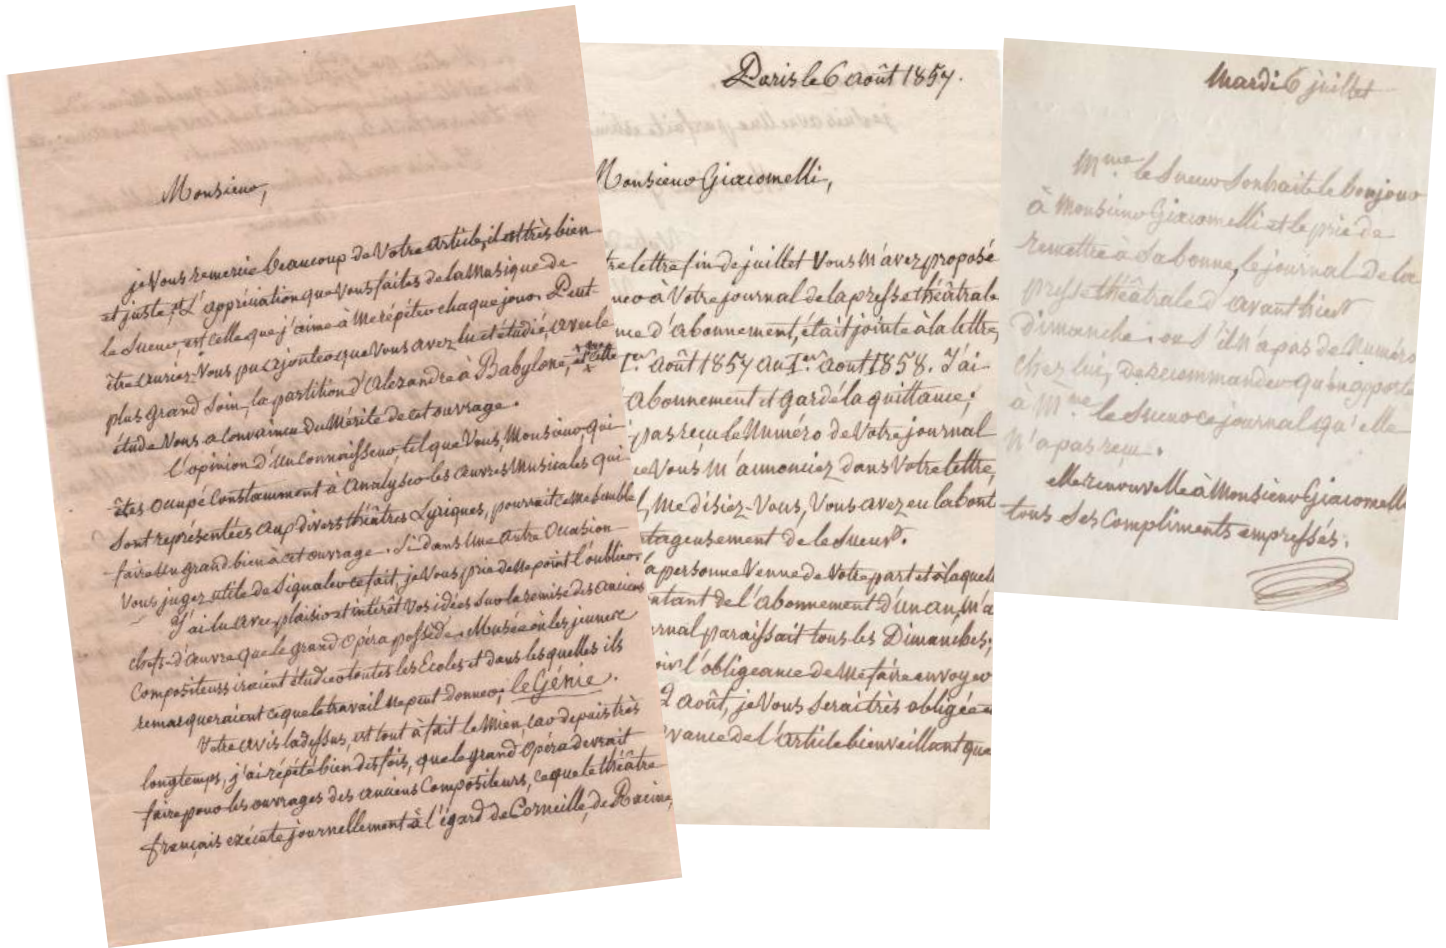 Monsieur,
je vous remercie beaucoup de votre article, il est très bien
et juste; L'appréciation que vous faites de la Musique de
le Sueur, est celle que j'aime à me répéter chaque jour. Peut-
être auriez-vous pu ajouter que vous avez lu et étudié, avec le
plus grand soin, la partition d'Alexandre à Babylone, et cette
étude vous a convaincu du Mérite de cet ouvrage.
L'opinion d'un connaisseur tel que vous, Monsieur, qui
êtes occupé constamment à analyser les œuvres musicales qui
sont représentées aux divers théâtres Lyriques, pourrait ce me semble
faire un grand bien à cet ouvrage. Si dans une autre occasion
vous jugez utile de signaler ce fait, je vous prie de ne point l'oublier.
J'ai lu avec plaisir et intérêt vos idées sur la remise des anciens
chefs-d'œuvre que le grand Opéra possède. Musée où les jeunes
compositeurs iraient étudier toutes les Ecoles et dans lesquelles ils
remarqueraient ce que le travail ne peut donner; le Génie.
Votre avis la dessus, est tout à fait le mien, car depuis très
longtemps, j'ai répété bien des fois, que le grand Opéra devrait
faire pour les ouvrages des anciens Compositeurs, ce que le théâtre
français exécute journellement à l'égard de Corneille, de Racine,
Paris le 6 août 1857.
Monsieur Giacomelli,
tre lettre fin de juillet vous m'avez proposé
ner à votre journal de la presse théâtrale
me d'abonnement, était jointe à la lettre,
1er août 1857 au 1er aout 1858. J'ai
abonnement et gardé la quittance;
pas reçu le Numéro de votre journal
ue vous m'annonciez dans votre lettre,
l, me disiez-vous, vous avez eu la bont
tageusement de le Sueur.
a personne venue de votre part et à laquell
ntant de l'abonnement d'un an, m'a
urnal paraissait tous les Dimanches;
oir l'obligeance de me faire envoyer
2 août, je vous serai très obligée
evance de l'article bienveillant que
Mardi 6 juillet
Mme le Sueur souhaite le bonjour
à Monsieur Giacomelli et le prie de
remettre à sa bonne, le journal de la
presse théâtrale d'avant hier
dimanche; ou s'il n'a pas de Numéro
chez lui, de recommander qu'on apporte
à Mme le Sueur ce journal qu'elle
N'a pas reçu.
elle renouvelle à Monsieur Giacomelli
tous ses compliments empressés.